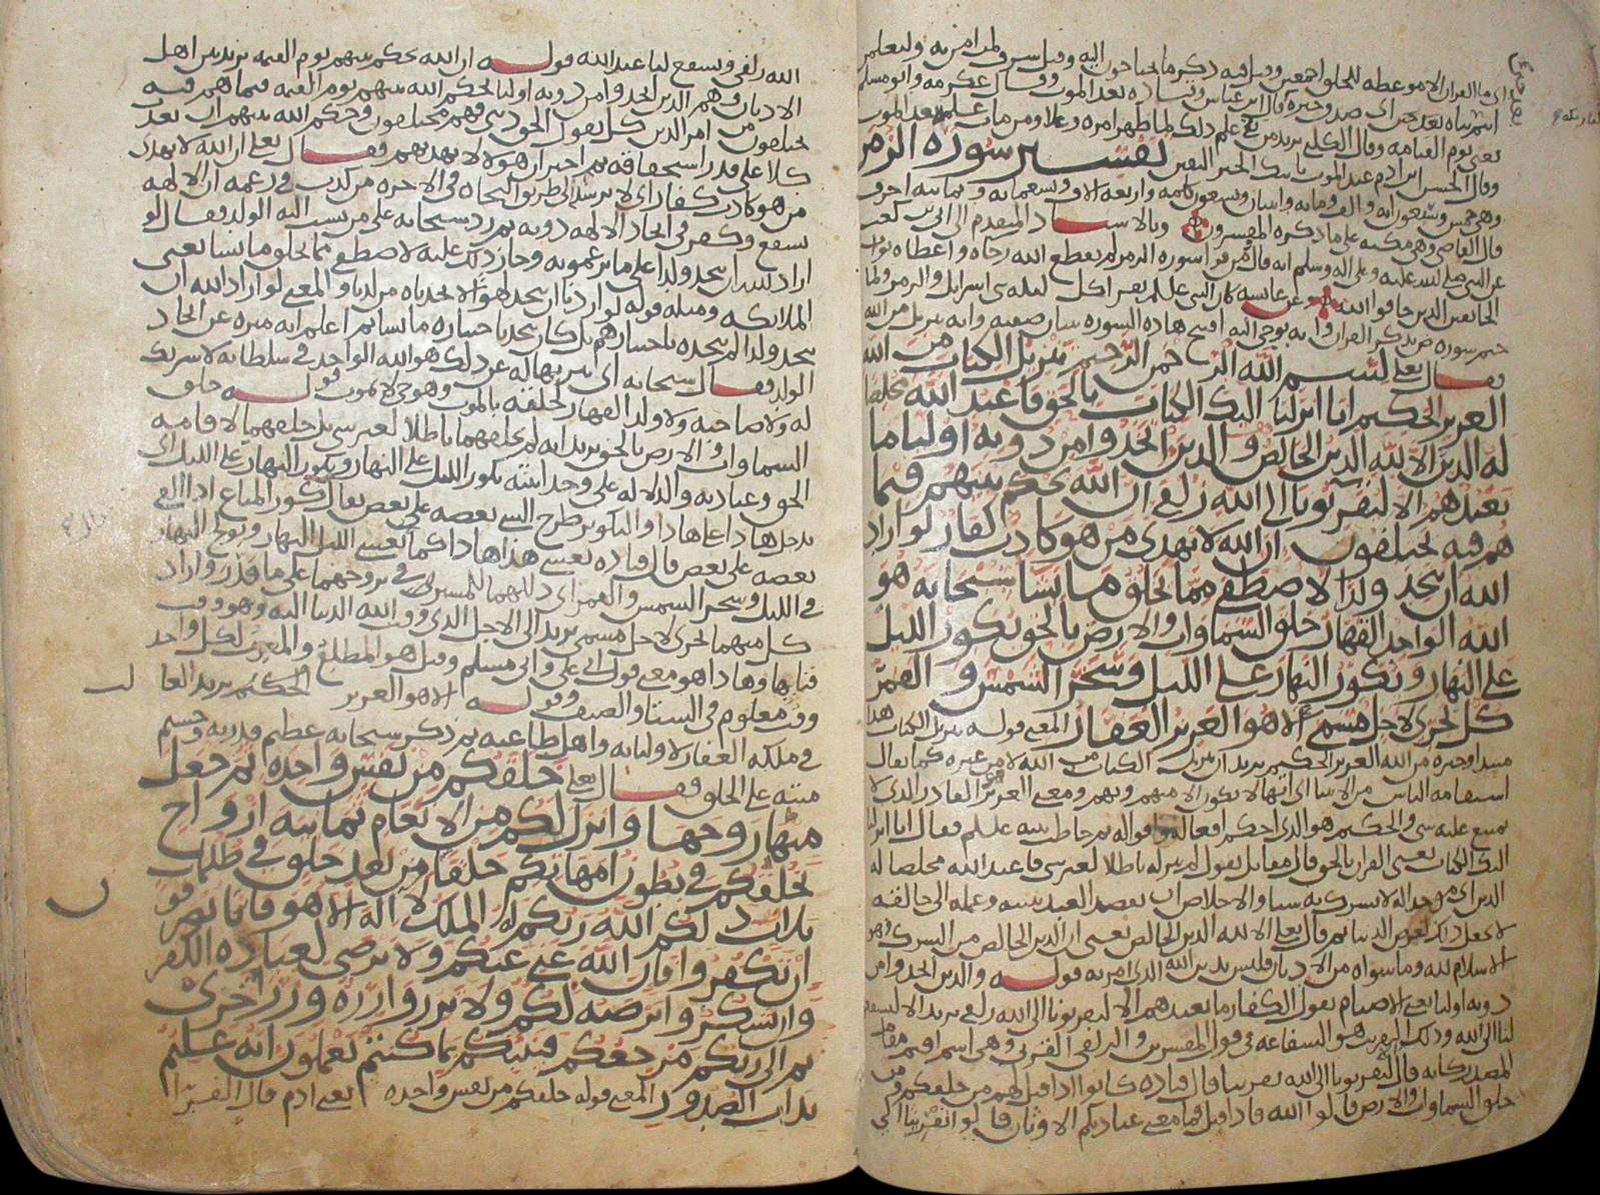 اى ما القران الا موعظه للخلق اجمعين وقيل فيه ذكر ما يحتاجون اليه وقيل شرف لمن امن به ولتعلمن
يعنى يوم القيامه وقال الكلبى
وقال الحسن ابن ادم عند الموت ياتيك الخبر اليقين تفسير سورة الزمر
وهى خمس وسبعون ايه والف ومايه واثنان وسبعون كلمه واربعه الاف وتسعمايه وثمانيه احرف
قال القاضى وهى مكيه على ما ذكره المفسرون وبالاسناد المتقدم الى ابى بن كعب
عن النبى صلى الله عليه وعلى اله وسلم انه قال من قرا سوره الزمر لم يقطع الله رجاه واعطاه ثواب
الخايفين الذين خافوا الله عن عايشه كان النبى عليلم يقرا كل ليله بنى اسرايل والزمر ولما
ختم سوره ص بذكر القران وانه يوحى اليه افتتح هاذه السوره ببيان صفته وانه تنزيل من الله
فقال تعلى بسم الله الرحمن الرحيم تنزيل الكتاب من الله
العزيز الحكيم انا انزلنا اليك الكتاب بالحق فاعبد الله مخلصا
له الدين الا لله الدين الخالص والذين اتخذوا من دونه اوليا ما
نعبدهم الا ليقربونا الى الله زلفى ان الله يحكم بينهم فيما
هم فيه يختلفون ان الله لا يهدى من هو كاذب كفار لو اراد
الله ان يتخذ ولدا لاصطفى مما يخلق ما يشا سبحانه هو
الله الواحد القهار خلق السماوات والارض بالحق يكور الليل
على النهار ويكور النهار على الليل وسخر الشمس والقمر
كل يجرى لاجل مسمى الا هو العزيز الغفار المعنى قوله تنزيل الكتاب هذا
مبتدا وخبره من الله العزيز الحكيم يريد ان تنزيل الكتاب من الله لا من غيره كما يقال
استقامه الناس من الانبيا اى انها لا تكون الا منهم وبهم ومعنى العزيز القادر الذى لا
يمتنع عليه شى والحكيم هو الذى احكم افعاله واقواله ثم خاطب نبيه عليلم فقال انا انزلنا
اليك الكتاب يعنى القران بالحق قال مقاتل يقول لم ينزله باطلا لغير شى فاعبد الله مخلصا له
الدين اى موحدا له لا تشرك به شيا والاخلاص ان يقصد العبد بنيته وعمله الى خالقه
لا يجعل ذلك لغرض الدنيا ثم قال تعلى الا لله الدين الخالص يعنى ان الدين الخالص من الشرك هو
الاسلام لله وما سواه من الاديان فليس بدين الله الذى امر به قوله والذين اتخذوا من
دونه اوليا يعنى الاصنام يقول الكفار ما نعبدهم الا ليقربونا الى الله زلفى يريد الا ليشفعوا
لنا الى الله وذلك التقريب هو الشفاعه فى قول المفسرين والزلفى القربى وهى اسم اقيم مقام
المصدر كانه قال ليقربونا الى الله تقريبا قال قتاده كانوا اذا قيل لهم من خلقكم ومن
خلق السماوات والارض قالوا الله فاذا قيل فما معنى عبادتكم الاوثان قالوا لتقربنا الى
الله زلفى وتشفع لنا عند الله قوله ان الله يحكم بينهم يوم القيمه يريد بين اهل
الاديان وهم الذين اتخذوا من دونه اوليا يحكم الله بينهم يوم القيمه فيما هم فيه
يختلفون من امر الدين كل يقول الحق دينى فهم مختلفون وحكم الله بينهم ان يعذب
كلا على قدر استحقاقه ثم اخبر ان هولا لا يهديهم فقال تعلى ان الله لا يهدى
من هو كاذب كفار اى لا يرشد الى طريق النجاه فى الاخره من كذب فى زعمه ان الالهه
تشفع وكفر فى اتخاذ الالهه دونه ثم رد سبحانه على من ينسب اليه الولد فقال لو
اراد الله ان يتخذ ولدا على ما يزعمونه وجاز ذلك عليه لاصطفى مما يخلق ما يشا يعنى
الملايكه ومثله قوله لو اردنا ان نتخذ لهوا لاتخذناه من لدنا والمعنى لو اراد الله ان
يتخذ ولدا لم يتخذه باختيارهم بل كان يتخذ باختياره ما يشا ثم اعلم انه منزه عن اتخاذ
الولد فقال سبحانه اى تنزيها له عن ذلك هو الله الواحد فى سلطانه لا شريك
له ولا صاحبه ولا ولد القهار لخلقه بالموت وهو حى لا يموت قوله خلق
السماوات والارض بالحق يريد انه لم يخلقهما باطلا لغير شى بل خلقهما لاقامه
الحق وعبادته والدلاله على وحدانيته يكور الليل على النهار ويكور النهار على الليل اى
يدخل هاذا على هاذا والتكوير طرح الشى بعضه على بعض يقال كور المتاع اذا القى
بعضه على بعض قال قتاده يغشى هذا هاذا كما يغشى الليل النهار ويولج النهار
فى الليل وسخر الشمس والقمر اى ذللهما للمسير فى بروجهما على ما قدر واراد
كل منهما يجرى لاجل مسمى يريد الى الاجل الذى وقت الله الدنيا اليه وهو وقت
فنايها وهاذا هو معنى قول ابى على وابى مسلم وقيل هو المطلع والمغرب لكل واحد
وقت معلوم فى الشتا والصيف وقوله الا هو العزيز الحكيم يريد الغالب
فى ملكه الغفار لاوليايه واهل طاعته ثم ذكر سبحانه عظيم قدرته وجسيم
منته على الخلق فقال تعلى خلقكم من نفس واحده ثم جعل
منها زوجها وانزل لكم من الانعام ثمانيه ازواج
يخلقكم فى بطون امهاتكم خلقا من بعد خلق فى ظلمات
ثلاث ذلكم الله ربكم له الملك لا اله الا هو فانى تصرفون
ان تكفروا فان الله غنى عنكم ولا يرضى لعباده الكفر
وان تشكروا يرضه لكم ولا تزر وازره وزر اخرى
ثم الى ربكم مرجعكم فينبيكم بما كنتم تعملون انه عليم
بذات الصدور المعنى قوله خلقكم من نفس واحده يعنى ادم قال الفرا